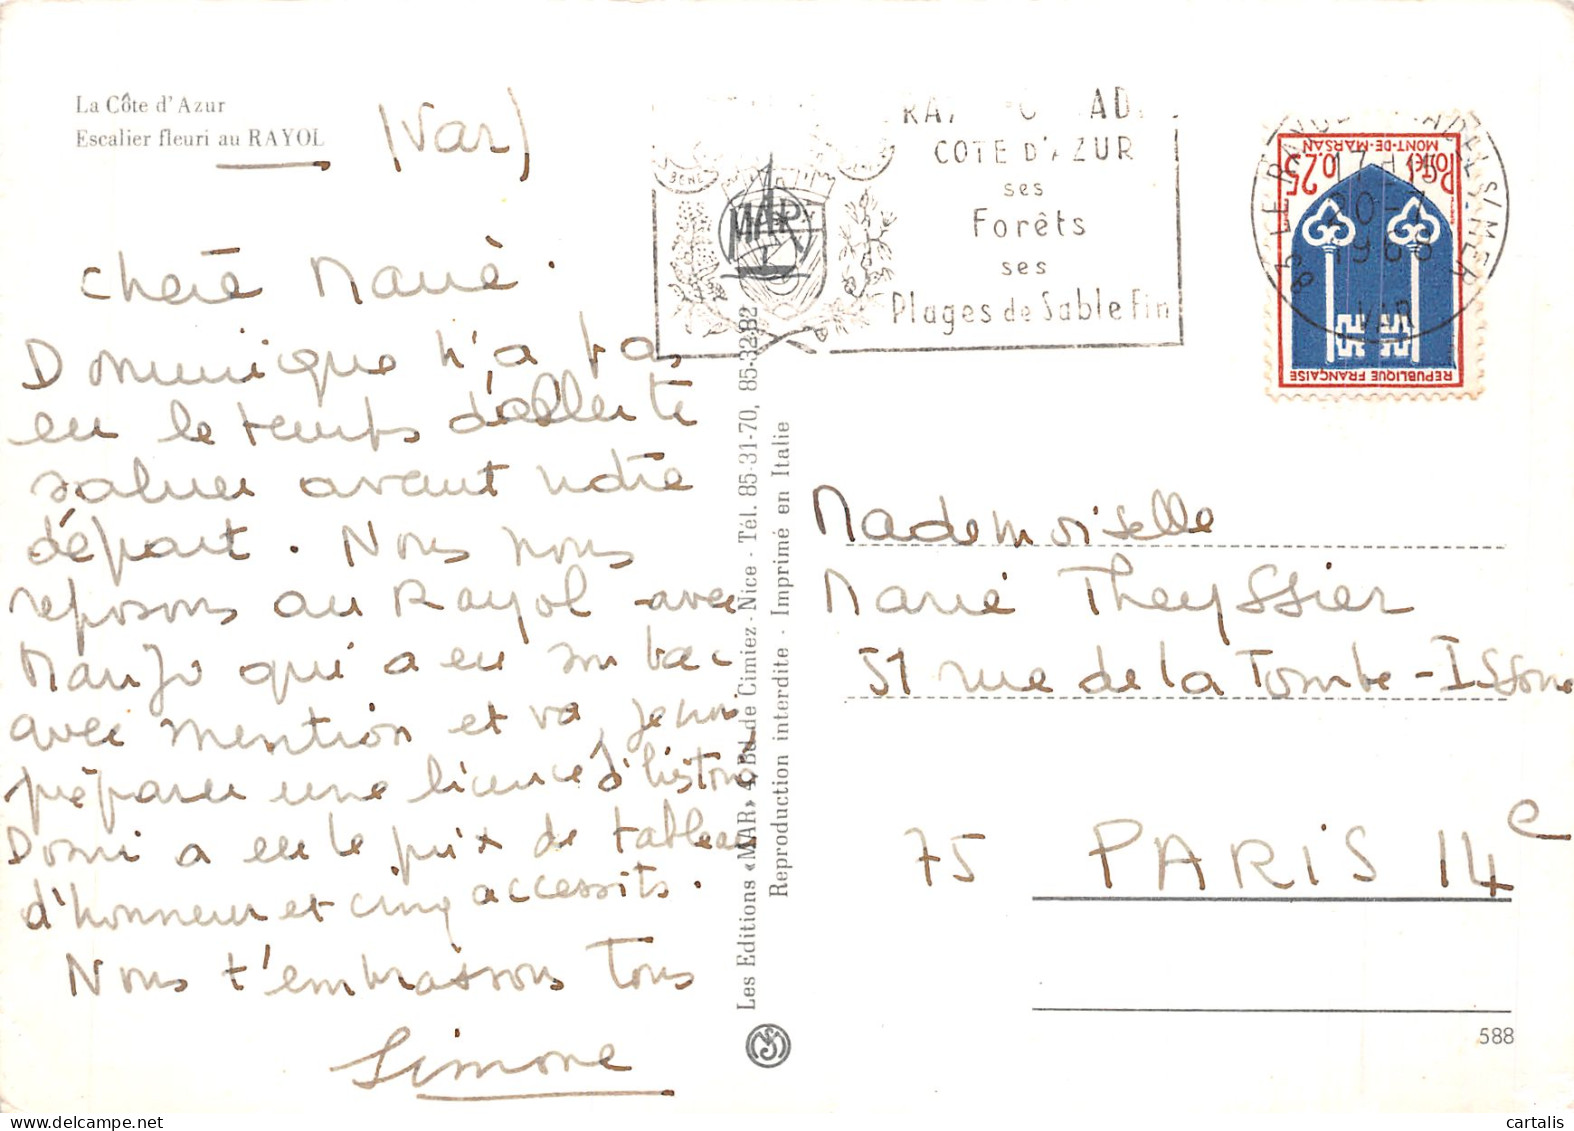 La Côte d'Azur
Escalier fleuri au RAYOL
(Var)
Chère Marie.
Dominique n'a pas
eu le temps d'aller te
saluer avant notre
départ. Nous nous
reposons au Rayol avec
Manjo qui a eu son bac
avec mention et va, je
préparer une licence d'histoire
Domi a eu le prix de tableau
d'honneur et cinq accessits.
Nous t'embrassons tous
Simone
Les Editions «MAR» 4, Bd de Cimiez - Nice - Tél. 85-31-70, 85-32-82
Reproduction interdite - Imprimé en Italie
MAR
COTE D'AZUR
ses
Forêts
ses
Plages de Sable Fin
83 LE RAYOL S/MER
17 H
20-7
1966
VAR
Postes 0,25
MONT-DE-MARSAN
REPUBLIQUE FRANÇAISE
Mademoiselle
Marie Theyssier
51 rue de la Tombe-Issoire
75 PARIS 14e
588
cartalis
www.delcampe.net